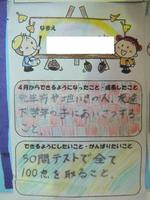 なまえ
4月からできるようになったこと・成長したこと
先生方や地いきの人、友達
下学年の子にあいさつする
こと。
できるようにしたいこと・がんばりたいこと
50問テストで全て
100点を取ること。